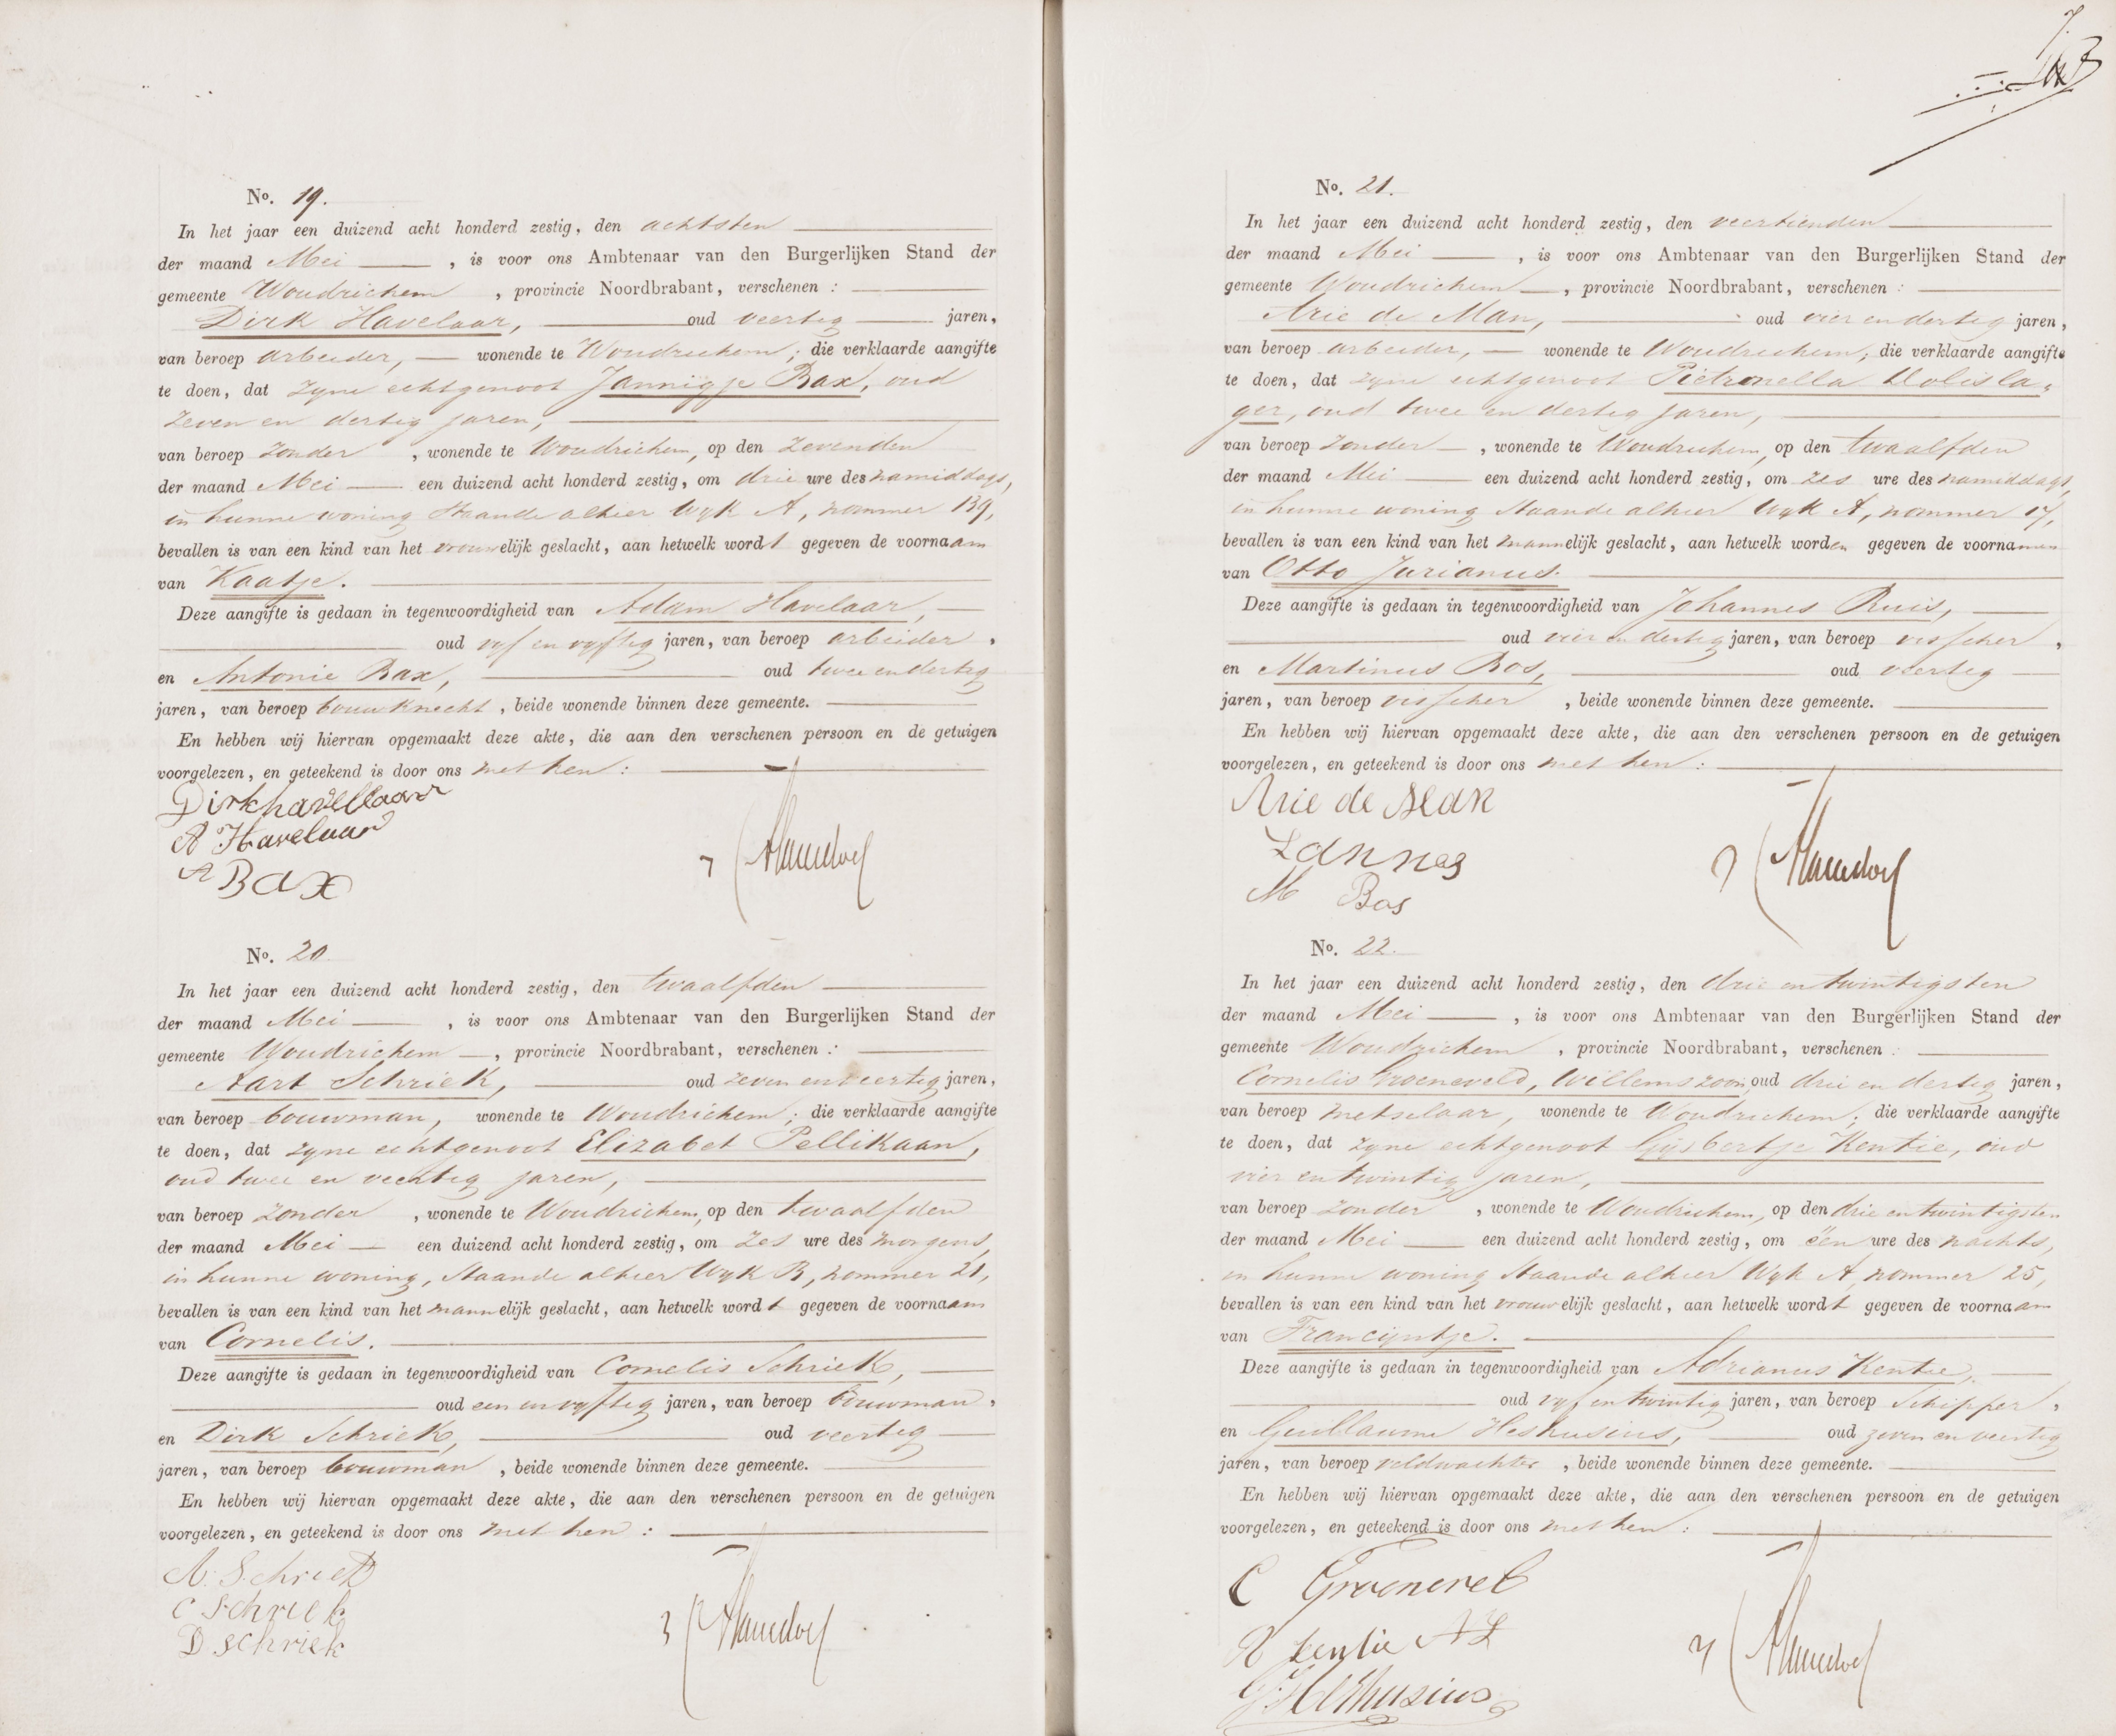 No. 19.
In het jaar een duizend acht honderd zestig, den achtsten
der maand Mei, is voor ons Ambtenaar van den Burgerlijken Stand der
gemeente Woudrichem, provincie Noordbrabant, verschenen :
Dirk Havelaar, oud veertig jaren,
van beroep arbeider, wonende te Woudrichem; die verklaarde aangifte
te doen, dat zyne echtgenoot Jannigje Bax, oud
zeven en dertig jaren,
van beroep zonder, wonende te Woudrichem, op den zevenden
der maand Mei een duizend acht honderd zestig, om drie ure des namiddags,
in hunne woning staande alhier Wyk A, nommer 139,
bevallen is van een kind van het vrouwelijk geslacht, aan hetwelk wordt gegeven de voornaam
van Kaatje.
Deze aangifte is gedaan in tegenwoordigheid van Adam Havelaar,
oud vyf en vyftig jaren, van beroep arbeider,
en Antonie Bax, oud twee en dertig
jaren, van beroep bouwknecht, beide wonende binnen deze gemeente.
En hebben wij hiervan opgemaakt deze akte, die aan den verschenen persoon en de getuigen
voorgelezen, en geteekend is door ons met hen :
Dirk havellaar
A Havelaar
A Bax
No. 20
In het jaar een duizend acht honderd zestig, den twaalfden
der maand Mei, is voor ons Ambtenaar van den Burgerlijken Stand der
gemeente Woudrichem, provincie Noordbrabant, verschenen :
Aart Schriek, oud zeven en veertig jaren,
van beroep bouwman, wonende te Woudrichem; die verklaarde aangifte
te doen, dat zyne echtgenoot Elizabet Pellikaan,
oud twee en veertig jaren,
van beroep zonder, wonende te Woudrichem, op den twaalfden
der maand Mei een duizend acht honderd zestig, om zes ure des morgens,
in hunne woning, staande alhier Wyk B, nommer 21,
bevallen is van een kind van het mannelijk geslacht, aan hetwelk wordt gegeven de voornaam
van Cornelis.
Deze aangifte is gedaan in tegenwoordigheid van Cornelis Schriek,
oud een en vyftig jaren, van beroep bouwman,
en Dirk Schriek, oud veertig
jaren, van beroep bouwman, beide wonende binnen deze gemeente.
En hebben wij hiervan opgemaakt deze akte, die aan den verschenen persoon en de getuigen
voorgelezen, en geteekend is door ons met hen :
A. Schriek
C Schriek
D schriek
No. 21.
In het jaar een duizend acht honderd zestig, den veertienden
der maand Mei, is voor ons Ambtenaar van den Burgerlijken Stand der
gemeente Woudrichem, provincie Noordbrabant, verschenen :
Arie de Man, oud vier en dertig jaren,
van beroep arbeider, wonende te Woudrichem; die verklaarde aangifte
te doen, dat zyne echtgenoot Pietronella Uolisla-
ger, oud twee en dertig jaren,
van beroep zonder, wonende te Woudrichem, op den twaalfden
der maand Mei een duizend acht honderd zestig, om zes ure des namiddags,
in hunne woning staande alhier Wyk A, nommer 17,
bevallen is van een kind van het mannelijk geslacht, aan hetwelk worden gegeven de voornamen
van Otto Jurianus.
Deze aangifte is gedaan in tegenwoordigheid van Johannes Ruis,
oud vier en dertig jaren, van beroep visscher,
en Martinus Bos, oud veertig
jaren, van beroep visscher, beide wonende binnen deze gemeente.
En hebben wij hiervan opgemaakt deze akte, die aan den verschenen persoon en de getuigen
voorgelezen, en geteekend is door ons met hen :
Arie de Man
M Bos
No. 22.
In het jaar een duizend acht honderd zestig, den drie en twintigsten
der maand Mei, is voor ons Ambtenaar van den Burgerlijken Stand der
gemeente Woudrichem, provincie Noordbrabant, verschenen :
Cornelis Groeneveld, Willemszoon, oud drie en dertig jaren,
van beroep metselaar, wonende te Woudrichem; die verklaarde aangifte
te doen, dat zyne echtgenoot Gysbertje Kentie, oud
vier en twintig jaren,
van beroep zonder, wonende te Woudrichem, op den drie en twintigsten
der maand Mei een duizend acht honderd zestig, om één ure des nachts,
in hunne woning staande alhier Wyk A, nommer 25,
bevallen is van een kind van het vrouwelijk geslacht, aan hetwelk wordt gegeven de voornaam
van Francijntje.
Deze aangifte is gedaan in tegenwoordigheid van Adrianus Kentie,
oud vyf en twintig jaren, van beroep Schipper,
en Guillaume Heshusius, oud zeven en veertig
jaren, van beroep veldwachter, beide wonende binnen deze gemeente.
En hebben wij hiervan opgemaakt deze akte, die aan den verschenen persoon en de getuigen
voorgelezen, en geteekend is door ons met hen :
C Groenevel
kentie AZ
G. Heshusius